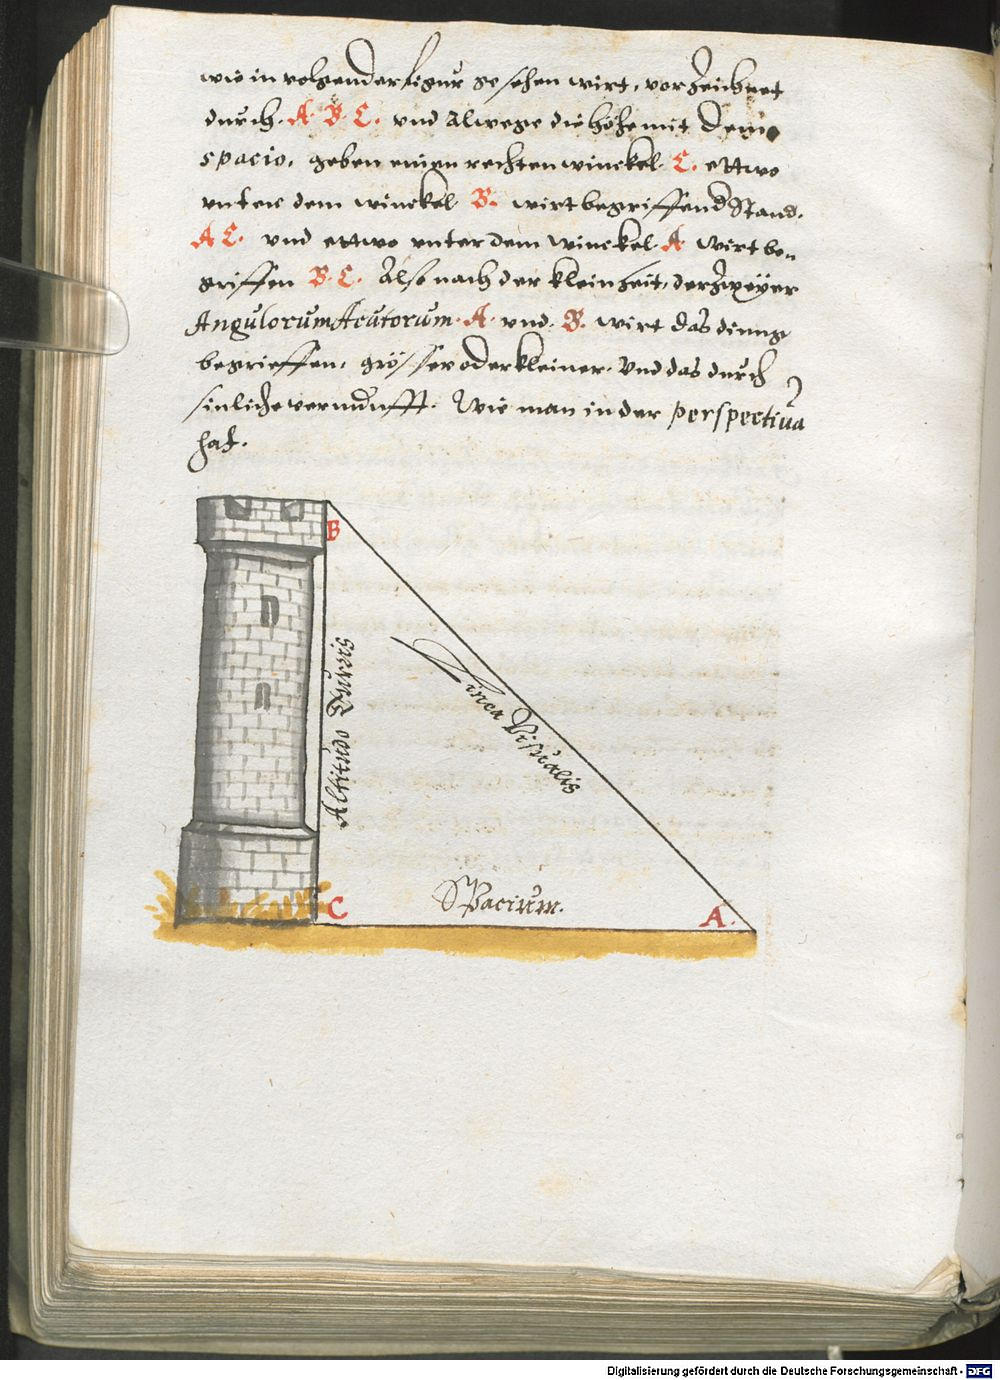 wie in volgender figur gesehen wirt, vorzeichnet
durch. A B C. und alwege die höhe mit dem
spacio, geben einen rechten winckel C. ettwo
unter dem winckel B. wirt begriffen d Stand.
A C. und ettwo unter dem winckel A wirt be-
griffen B C. Also nach der kleinheit, der zweyer
Angulorum Acutorum. A. und. B. wirt das ding
begrieffen, grösser oder kleiner. Und das durch
sinliche vernunfft. Wie man in der perspectiva
hat.
B
Altitudo Turris
Linea Visualis
C
Spacium.
A.
Digitalisierung gefördert durch die Deutsche Forschungsgemeinschaft - DFG